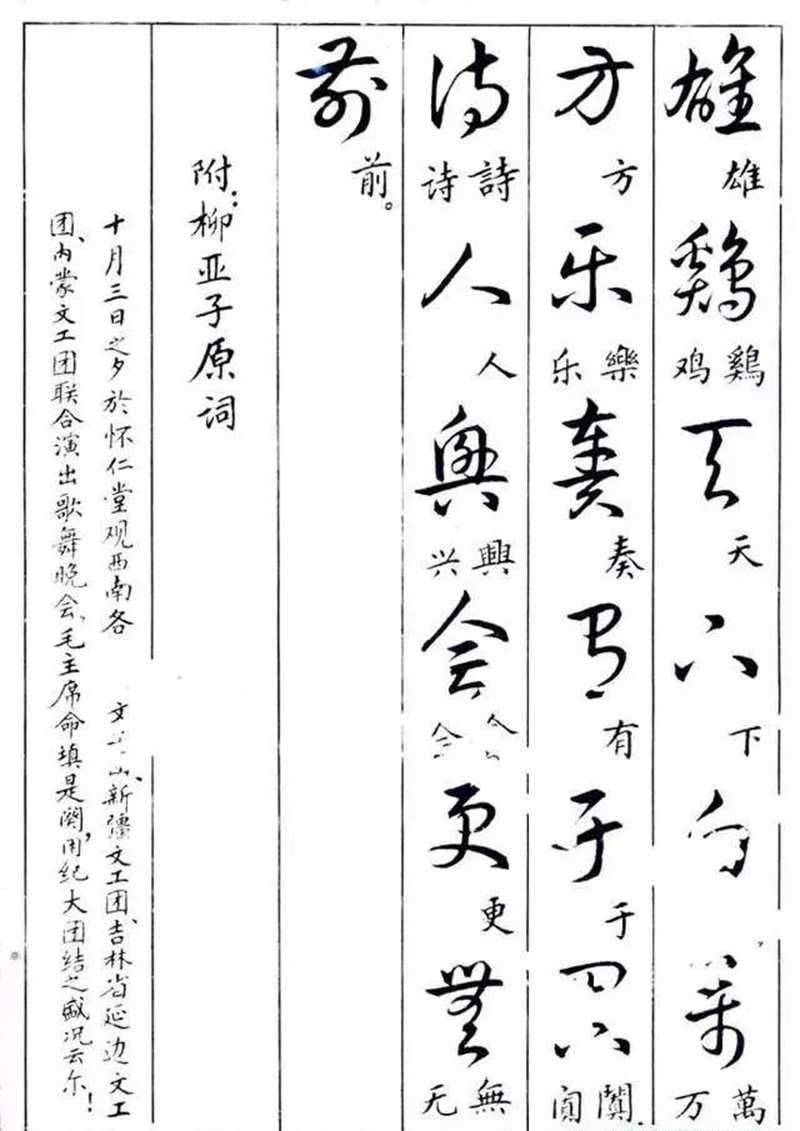 雄 雄 鷄 鷄 鸡 天 天 下 下 白 萬 萬 万
方 方 乐 樂 乐 奏 奏 有 有 于 于 闐 闐 阗
诗 詩 诗 人 人 興 興 兴 会 会 更 更 無 無 无
前 前。
附：柳亚子原词
十月三日之夕於怀仁堂观西南各 文 、新疆文工团、吉林省延边文工
团、内蒙文工团联合演出歌舞晚会、毛主席命填是阕，用纪大团结之盛况云尔！